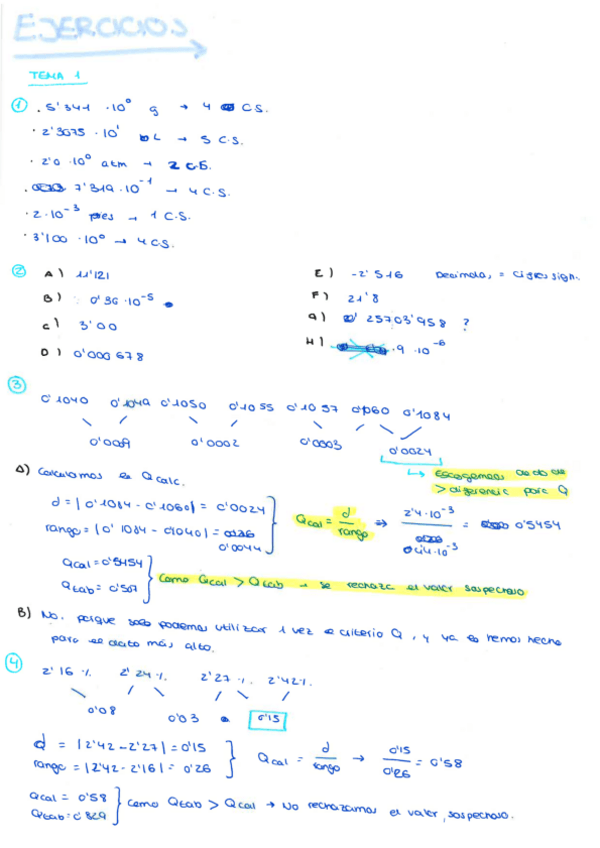 EJERCICIOS
TEMA 1
① · 5'341 · 10⁰ g → 4 C.S.
· 2'3075 · 10¹ L → 5 C.S.
· 2'0 · 10⁰ atm → 2 C.S.
· 7'319 · 10⁻¹ → 4 C.S.
· 2 · 10⁻³ pies → 1 C.S.
· 3'100 · 10⁰ → 4 C.S.
② A) 11'121 E) -2'516 Decimales, = cifras sign.
B) 0'96 · 10⁻⁵ F) 21'8
C) 3'00 G) 25703'958 ?
D) 0'000678 H) · 9 · 10⁻⁶
③
0'1040 0'1049 0'1050 0'1055 0'1057 0'1060 0'1084
0'0009 0'0002 0'0003 0'0024
A) Calculamos la Qcalc. ↳ Escogemos
> diferencia para Q
d = | 0'1084 - 0'1060 | = 0'0024
range = | 0'1084 - 0'1040 | = 0'0044
Qcal = d / rango ⇒ 2'4 · 10⁻³ / 4'4 · 10⁻³ = 0'5454
Qcal = 0'5454
Qtab = 0'507
Como Qcal > Qtab → se rechaza el valor sospechoso
B) No, porque solo podemos utilizar 1 vez el criterio Q, y ya lo hemos hecho
para el dato más alto.
④
2'16 % 2'24 % 2'27 % 2'42 %
0'08 0'03 0'15
d = | 2'42 - 2'27 | = 0'15
range = | 2'42 - 2'16 | = 0'26
Qcal = d / rango → 0'15 / 0'26 = 0'58
Qcal = 0'58
Qtab = 0'829
Como Qtab > Qcal → No rechazamos el valor sospechoso.